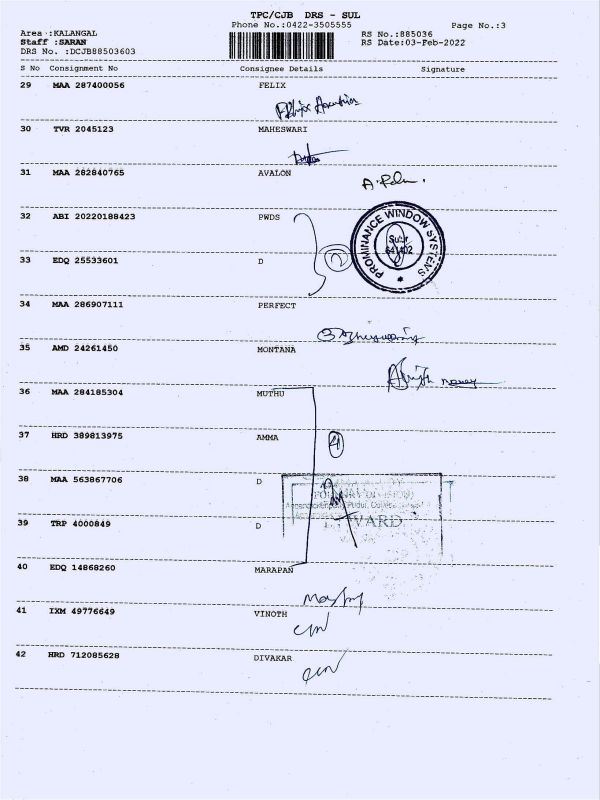 TPC/CJB DRS - SUL
Phone No.:0422-3505555 Page No.:3
Area :KALANGAL RS No.:885036
Staff :SARAN RS Date:03-Feb-2022
DRS No. :DCJB88503603
S No Consignment No Consignee Details Signature
29 MAA 287400056 FELIX
30 TVR 2045123 MAHESWARI
31 MAA 282840765 AVALON
32 ABI 20220188423 PWDS
PROMINANCE WINDOW SYSTEMS
Sulur
2
33 EDQ 25533601 D
34 MAA 286907111 PERFECT
35 AMD 24261450 MONTANA
36 MAA 284185304 MUTHU
37 HRD 389813975 AMMA
4
38 MAA 563867706 D
39 TRP 4000849 D
40 EDQ 14868260 MARAPAN
41 IXM 49776649 VINOTH
42 HRD 712085628 DIVAKAR